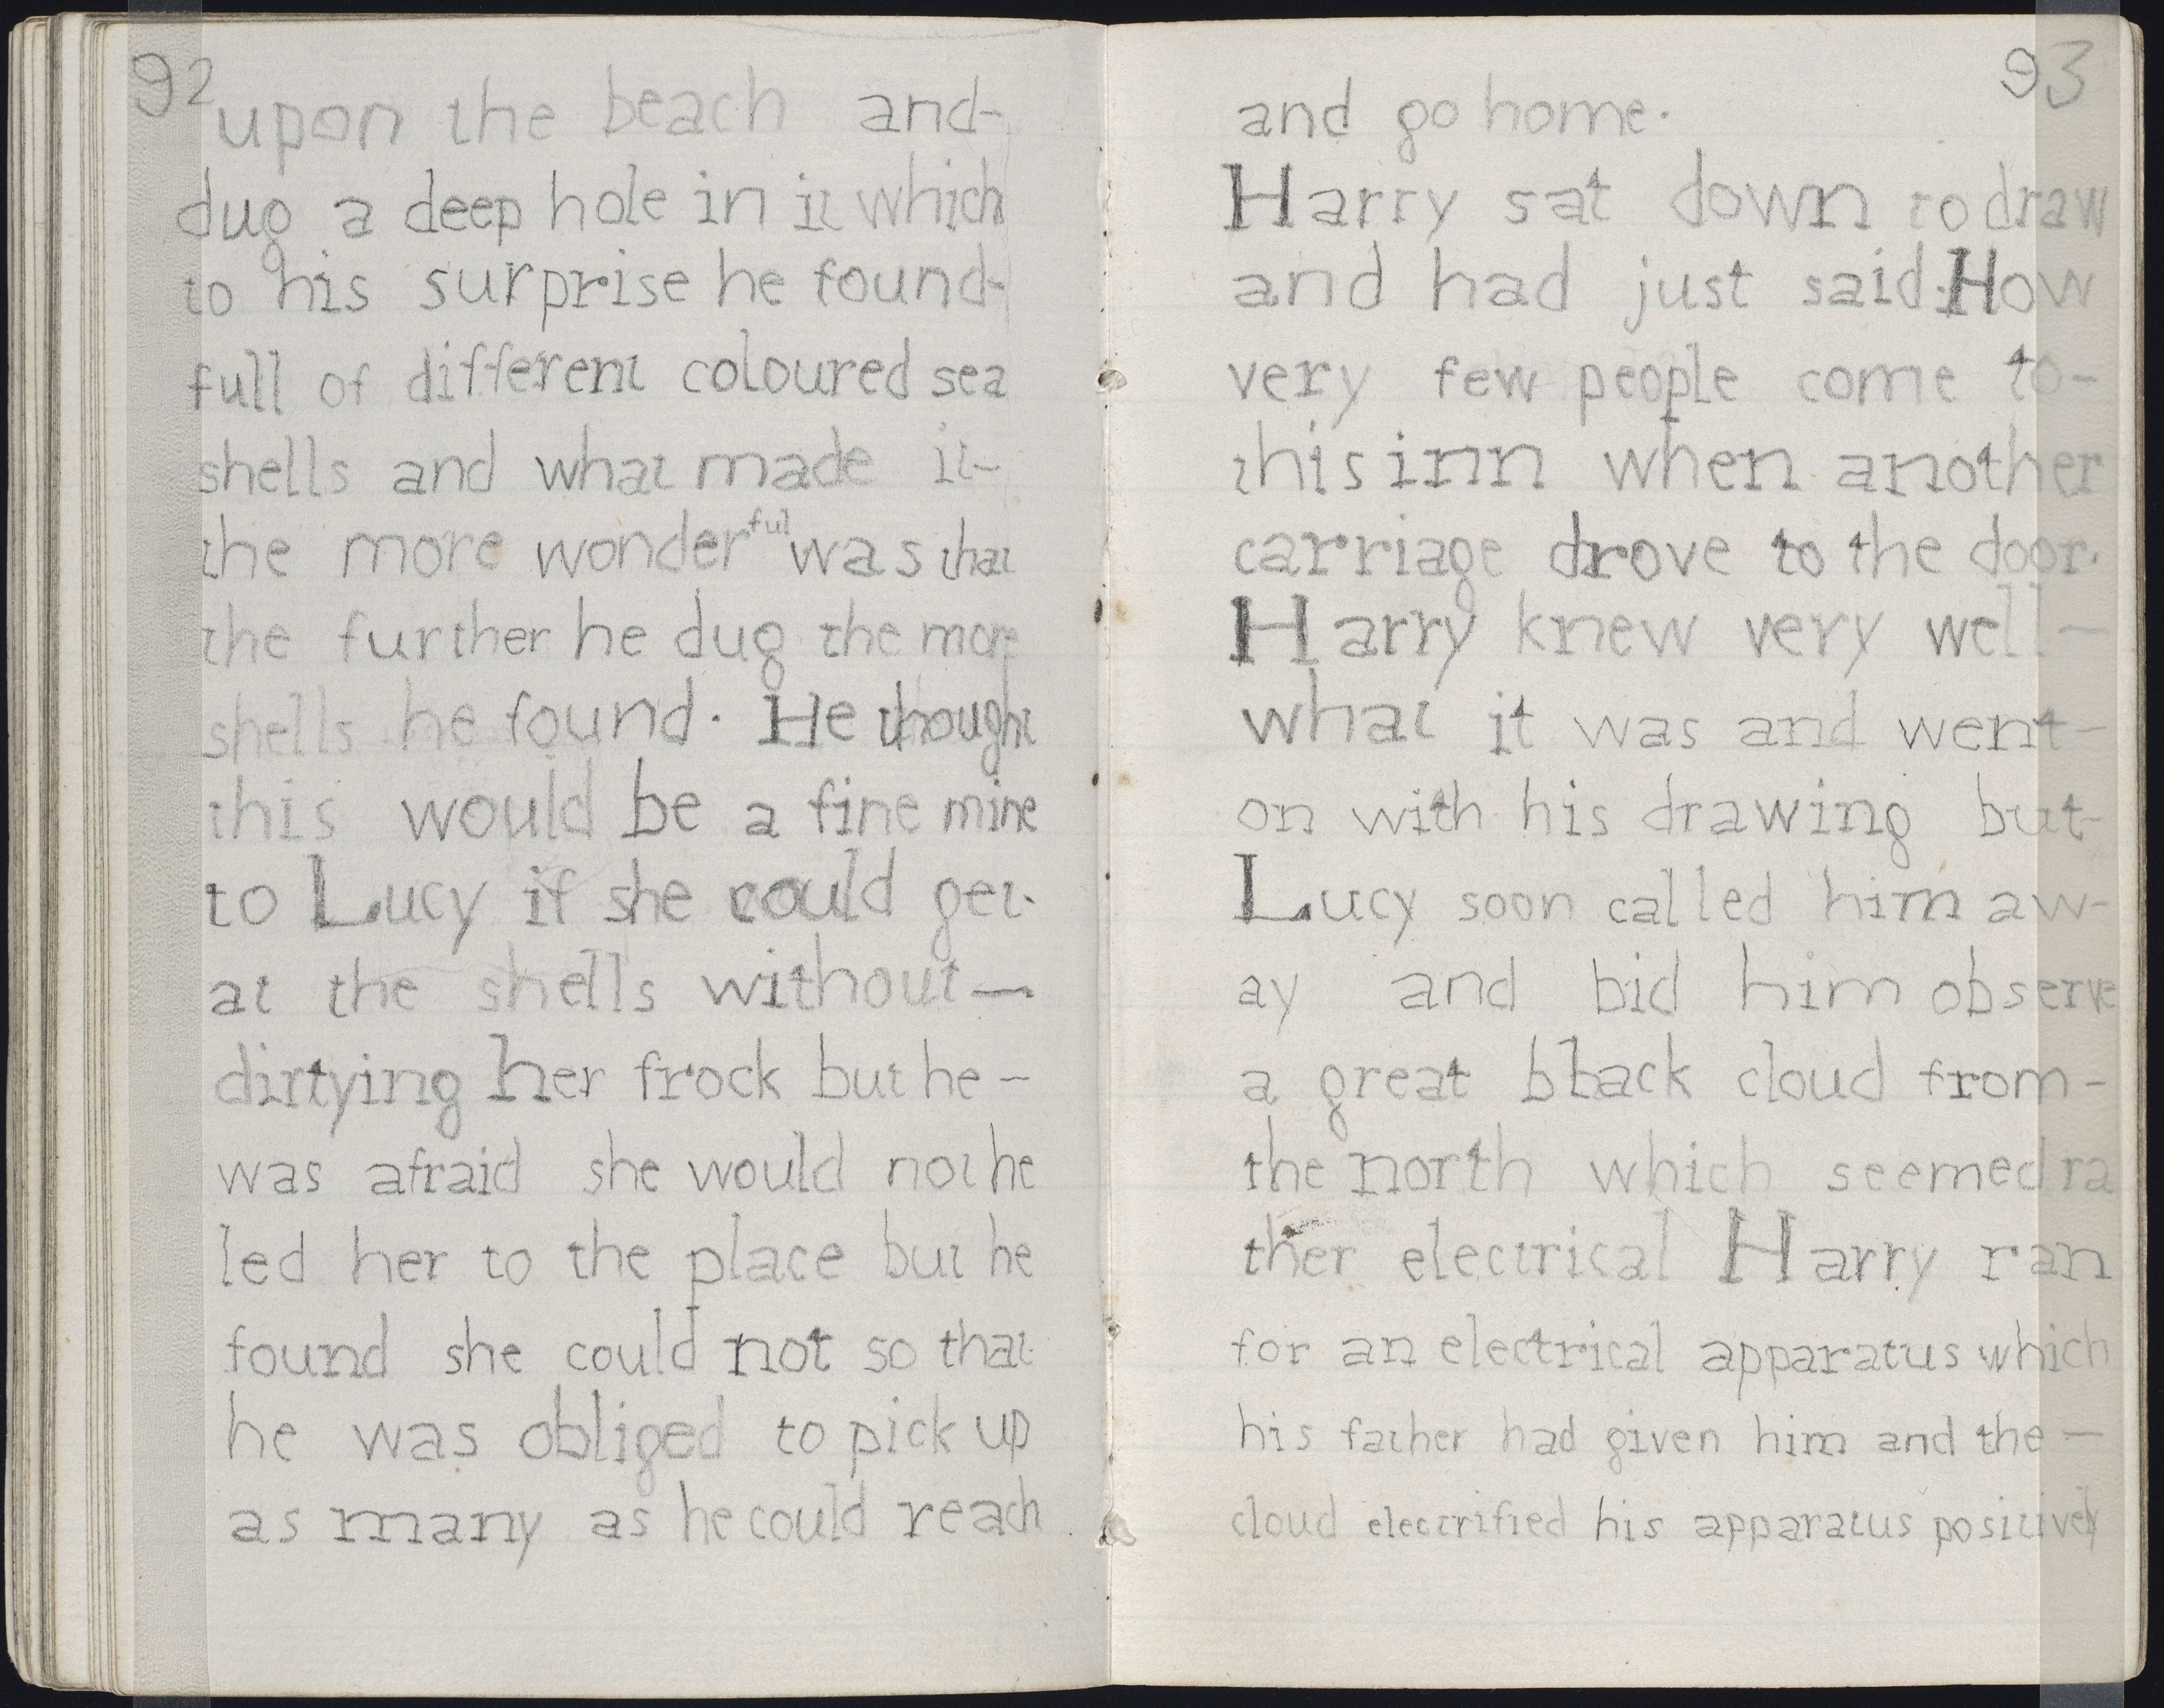 92
upon the beach and-
dug a deep hole in it which
to his surprise he found-
full of different coloured sea
shells and what made it-
the more wonderful was that
the further he dug the more
shells he found. He thought
this would be a fine mine
to Lucy if she could get.
at the shells without—
dirtying her frock but he-
was afraid she would not he
led her to the place but he
found she could not so that
he was obliged to pick up
as many as he could reach
93
and go home.
Harry sat down to draw
and had just said. How
very few people come to-
this inn when another
carriage drove to the door.
Harry knew very well—
what it was and went-
on with his drawing but-
Lucy soon called him aw-
ay and bid him observe
a great black cloud from-
the north which seemed ra
ther electrical Harry ran
for an electrical apparatus which
his father had given him and the—
cloud electrified his apparatus positively